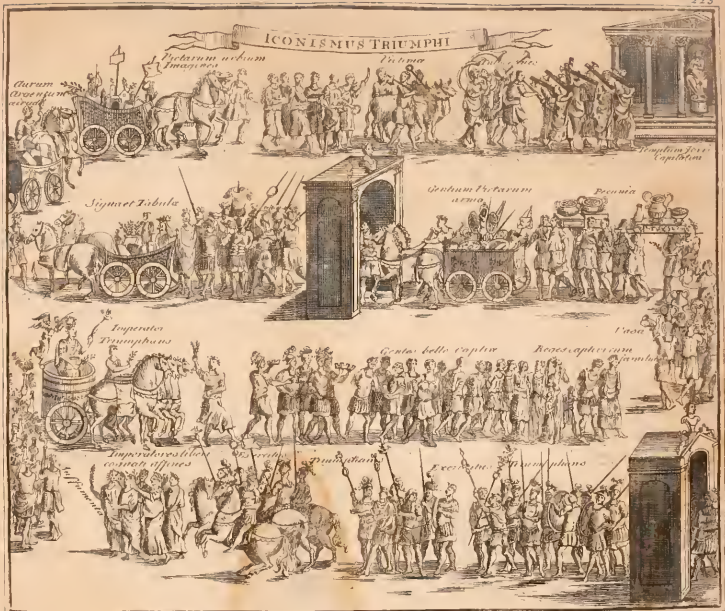 223
ICONISMUS TRIUMPHI
Victarum urbium
Imagines
Victima
Aurum
Argentum
Templum Jovis
Capitolini
Signa et Tabulæ
Gentium Victarum
arma
Pecunia
Imperator
Triumphans
Gentes bello captiæ
Reges captivi cum
familia
Vasa
Imperatores liberi
cognati affines
Exercitus Triumphans
Exercitus Triumphans